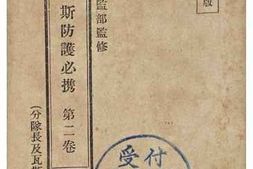 版
監部監修
斯防護必携 第二卷
(分隊長及瓦斯
受付